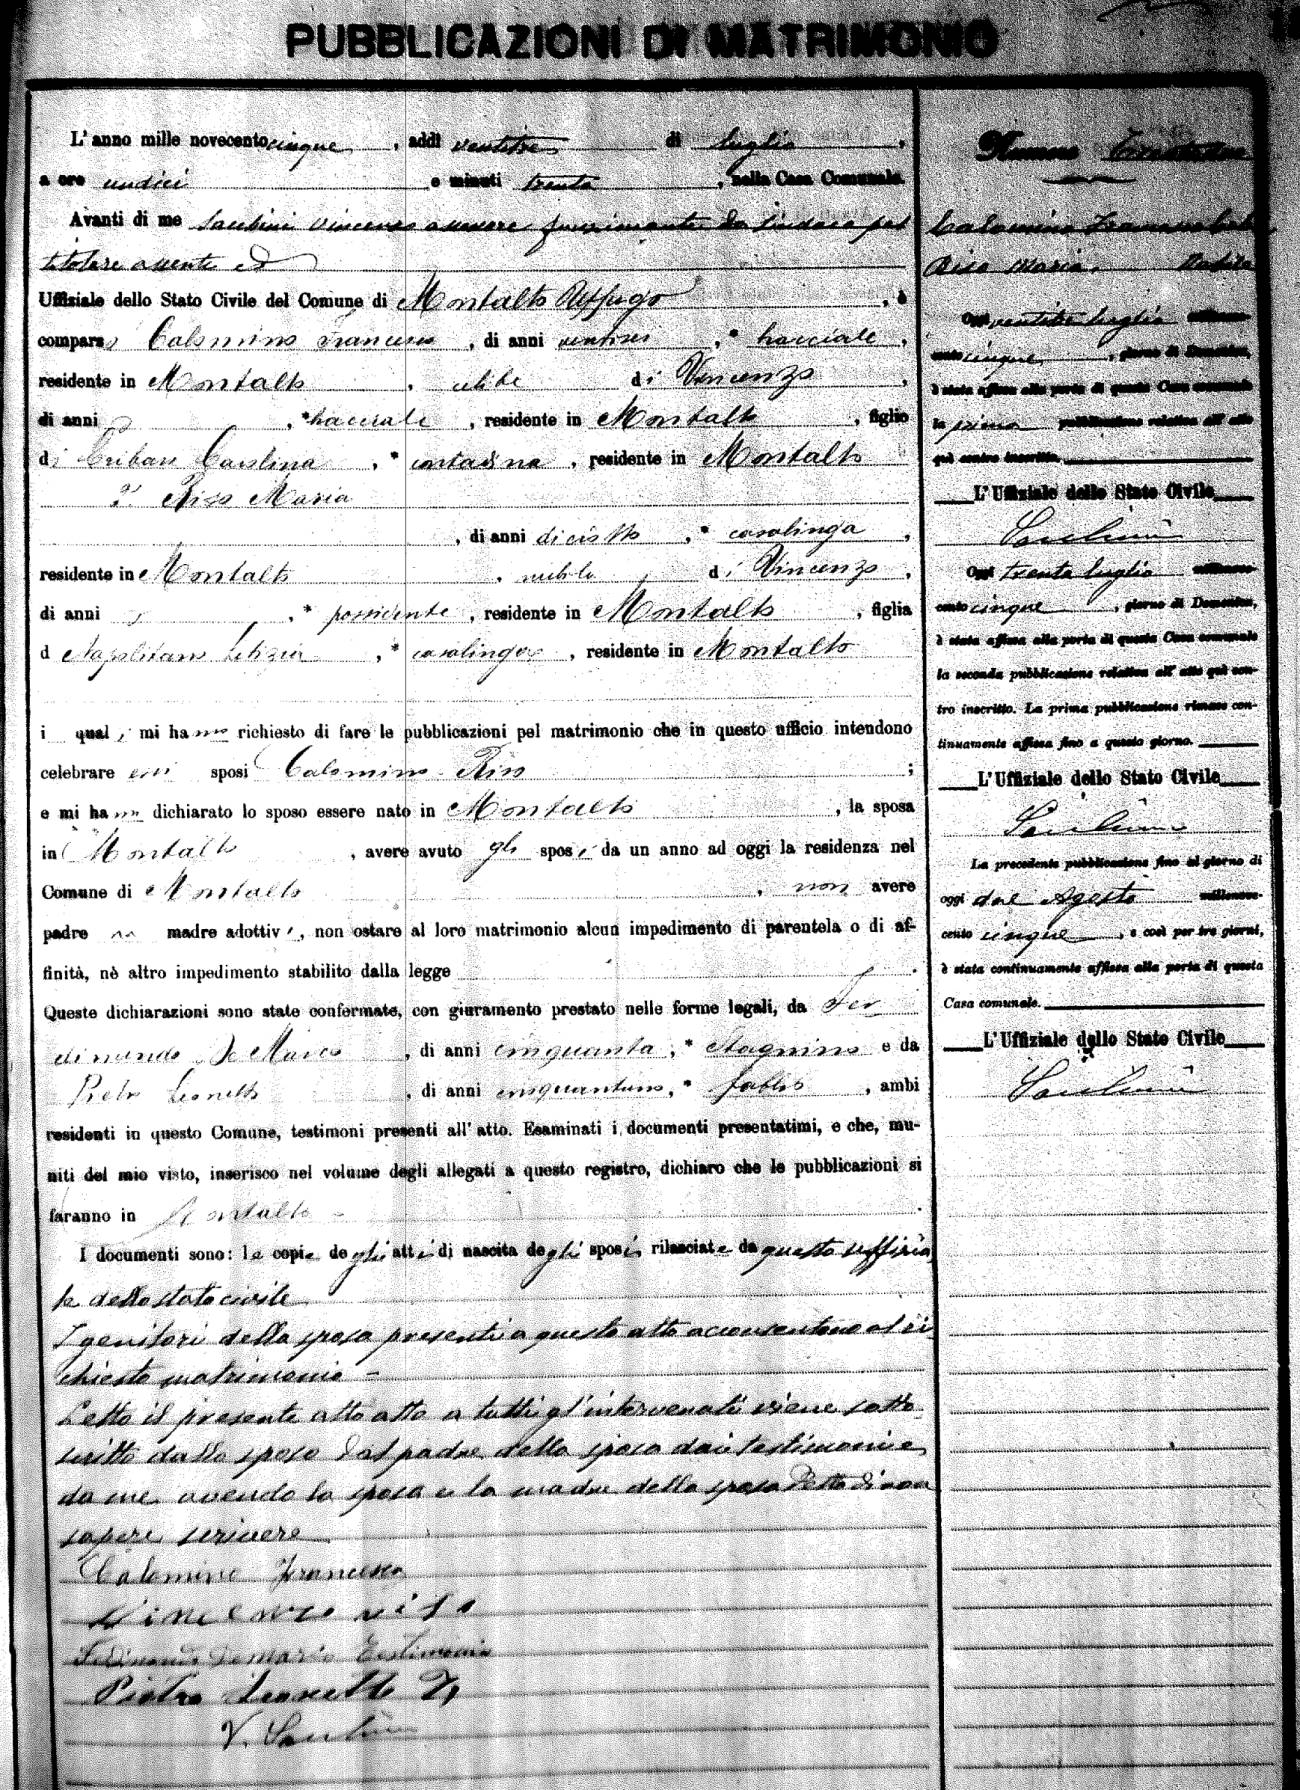 PUBBLICAZIONI DI MATRIMONIO
L'anno mille novecento cinque, addì ventitre di luglio,
a ore undici e minuti trenta, nella Casa Comunale.
Avanti di me Vincenzo assessore funzionante da sindaco pel
titolare assente ed
Uffiziale dello Stato Civile del Comune di Montalto Uffugo, è
compars Calomino Francesco, di anni ventisei, * bracciale,
residente in Montalto, celibe di Vincenzo,
di anni , * bracciale, residente in Montalto, figlio
di Cribari Carolina, * contadina, residente in Montalto
2° Riso Maria
, di anni diciotto, * casalinga,
residente in Montalto, nubile di Vincenzo,
di anni , * possidente, residente in Montalto, figlia
d Napolitano Letizia, * casalinga, residente in Montalto
i quali mi hanno richiesto di fare le pubblicazioni pel matrimonio che in questo ufficio intendono
celebrare essi sposi Calomino Riso ;
e mi hanno dichiarato lo sposo essere nato in Montalto, la sposa
in Montalto, avere avuto gli sposi da un anno ad oggi la residenza nel
Comune di Montalto, non avere
padre nè madre adottivi, non ostare al loro matrimonio alcun impedimento di parentela o di af-
finità, nè altro impedimento stabilito dalla legge.
Queste dichiarazioni sono state confermate, con giuramento prestato nelle forme legali, da Fer
dinando De Marco, di anni cinquanta, * Stagnino e da
Pietro Leonetti, di anni cinquantuno, * fabbro, ambi
residenti in questo Comune, testimoni presenti all'atto. Esaminati i documenti presentatimi, e che, mu-
niti del mio visto, inserisco nel volume degli allegati a questo registro, dichiaro che le pubblicazioni si
faranno in Montalto
I documenti sono: le copie degli atti di nascita degli sposi rilasciate da questo uffizia
le dello stato civile
I genitori della sposa presenti a questo atto acconsentono al ri
chiesto matrimonio
Letto il presente atto atto a tutti gl'intervenuti viene sotto
scritto dallo sposo dal padre della sposa dai testimoni e
da me avendo la sposa e la madre della sposa detto di non
sapere scrivere
Calomino Francesco
Vincenzo riso
Ferdinando Demarco Testimonio
Pietro Leonetti T,
V.
Numero
Calomino Francesco
Riso Maria.
Oggi ventitre luglio millenove-
cento cinque, giorno di Domenica,
è stata affissa alla porta di questa Casa comunale
la prima pubblicazione relativa all'atto
quì contro inscritto.
L'Uffiziale dello Stato Civile
Oggi trenta luglio millenove-
cento cinque, giorno di Domenica,
è stata affissa alla porta di questa Casa comunale
la seconda pubblicazione relativa all'atto quì con-
tro inscritto. La prima pubblicazione rimase con-
tinuamente affissa fino a questo giorno.
L'Uffiziale dello Stato Civile
La precedente pubblicazione fino al giorno di
oggi due Agosto millenove-
cento cinque, e così per tre giorni,
è stata continuamente affissa alla porta di questa
Casa comunale.
L'Uffiziale dello Stato Civile